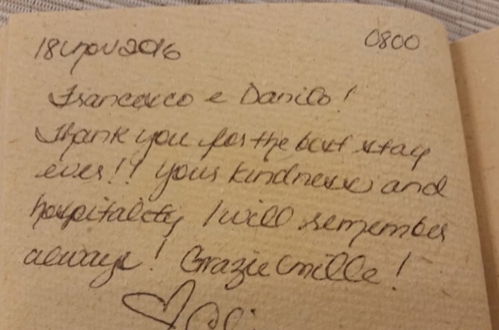 18 nov 2016 0800
Francesco e Danilo!
Thank you for the best stay
ever!! Your kindness and
hospitality I will remember
always! Grazie mille!